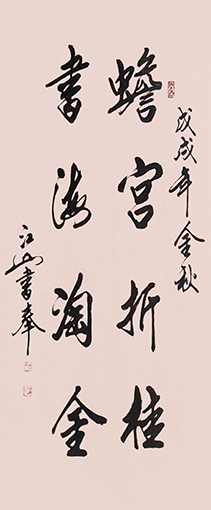 戊戌年金秋
蟾宫折桂
書海淘金
江山書奉